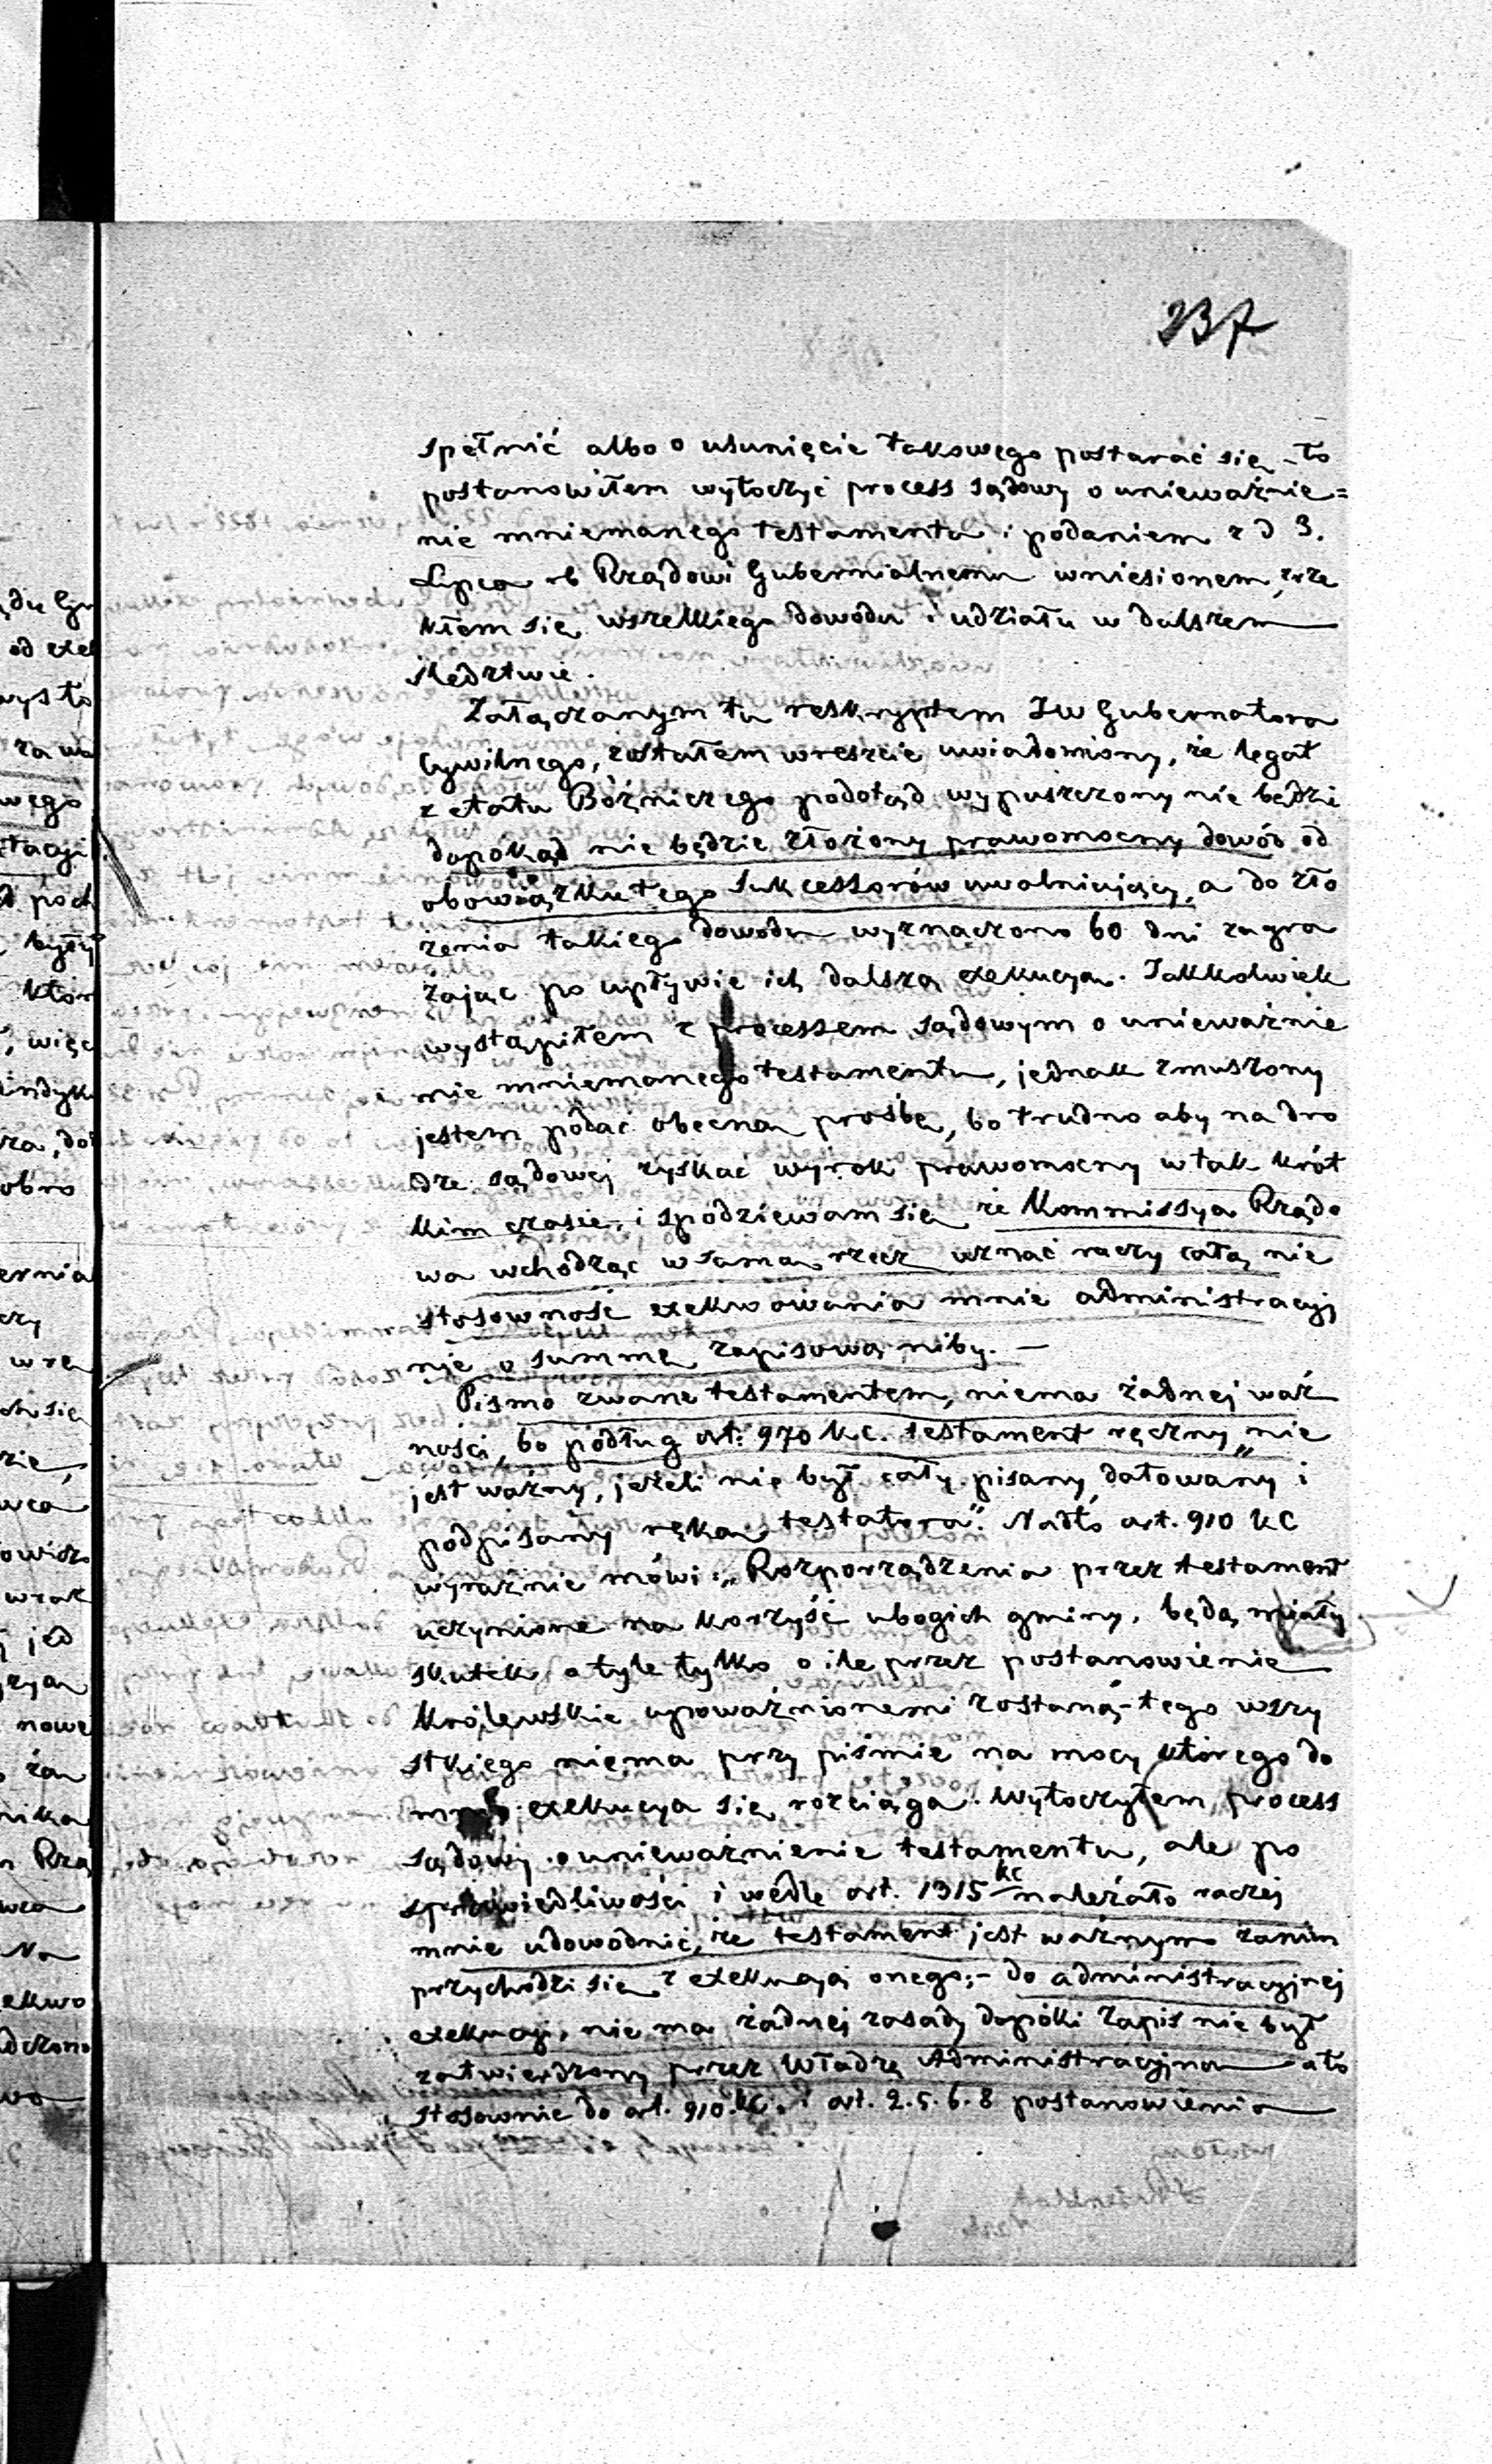 237
spełnić albo o usunięcie takowego postarać się – to
postanowiłem wytoczyć process sądowy o unieważnie=
nie mniemanego testamentu i podaniem z d 3.
Lipca rb Rządowi Gubernialnemu wniesionem, zrze
kłem się wszelkiego dowodu i udziału w dalszem
śledztwie.
Załączanym tu reskryptem JW Gubernatora
Cywilnego, zostałem wreszcie uwiadomiony, że legat
z etatu Bóżniczego podotąd wypuszczony nie będzie
dopókąd nie będzie złożony prawomocny dowód od
obowiązku tego sukcessorów uwalniający, a do zło
żenia takiego dowodu wyznaczono 60 dni zagra
żając po upływie ich dalszą exekucyą. Jakkolwiek
wystąpiłem z processem sądowym o unieważnie
nie mniemanego testamentu, jednak zmuszony
jestem podać obecną prośbę, bo trudno aby na dro
dze sądowej zyskać wyrok prawomocny w tak krót
kim czasie, i spodziewam się że Kommissya Rządo
wa wchodząc w samą rzecz uznać raczy całą nie
stosowność exekwowania mnie administracyj
nie o summę zapisową niby. –
Pismo zwane testamentem, niema żadnej waż
ności, bo podług art: 970 KC. testament ręczny „nie
jest ważny, jeżeli nie był cały pisany, datowany i
podpisany ręką testatora". Nadto art. 910 KC
wyraźnie mówi: „Rozporządzenia przez testament
uczynione na korzyść ubogich gminy, będą miały
skutek o tyle tylko o ile przez postanowienie
Królewskie upoważnionemi zostaną – tego wszy
stkiego niema przy piśmie na mocy którego do
mnie exekucya się rozciąga. Wytoczyłem process
sądowy o unieważnienie testamentu, ale po
sprawiedliwości i wedle art. 1315 KC należało raczej
mnie udowodnić, że testament jest ważnym zanim
przychodzi się z exekucyą onego; – do administracyjnej
exekucyi, nie ma żadnej zasady dopóki zapis nie był
zatwierdzony przez Władzę Administracyjną ato
stosownie do art. 910. KC. i art. 2. 5. 6. 8 postanowienia